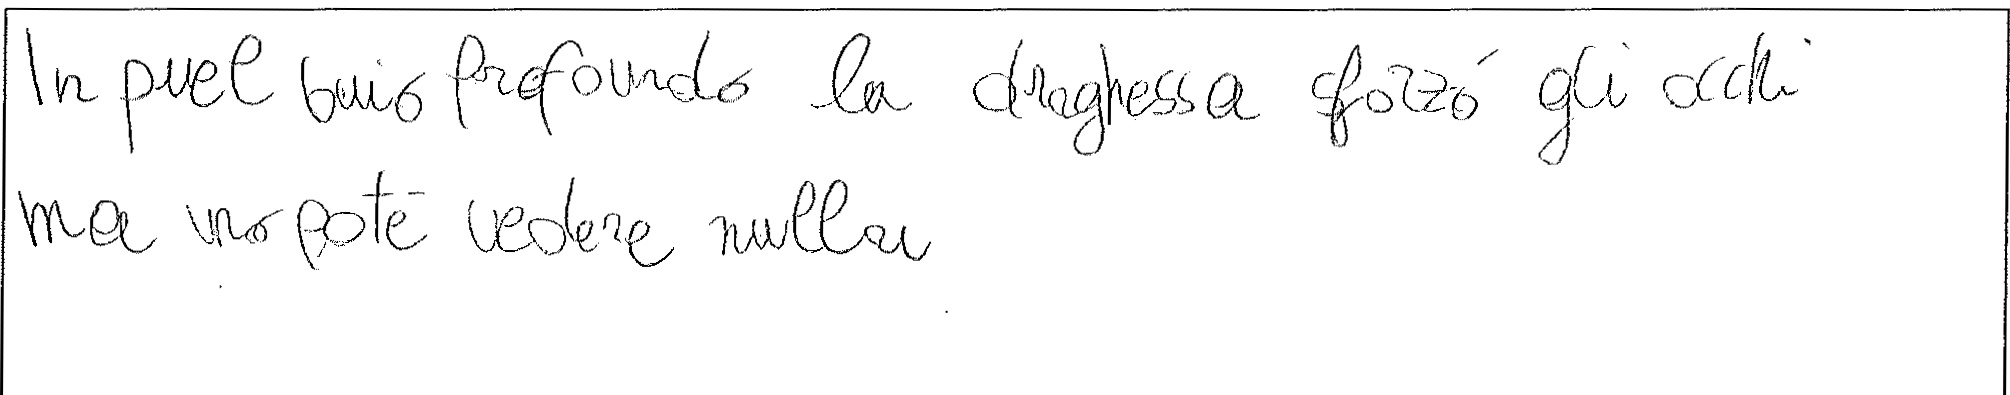 In puel buio profoundo la draghessa sforzó gli occhi
ma no poté vedere nulla